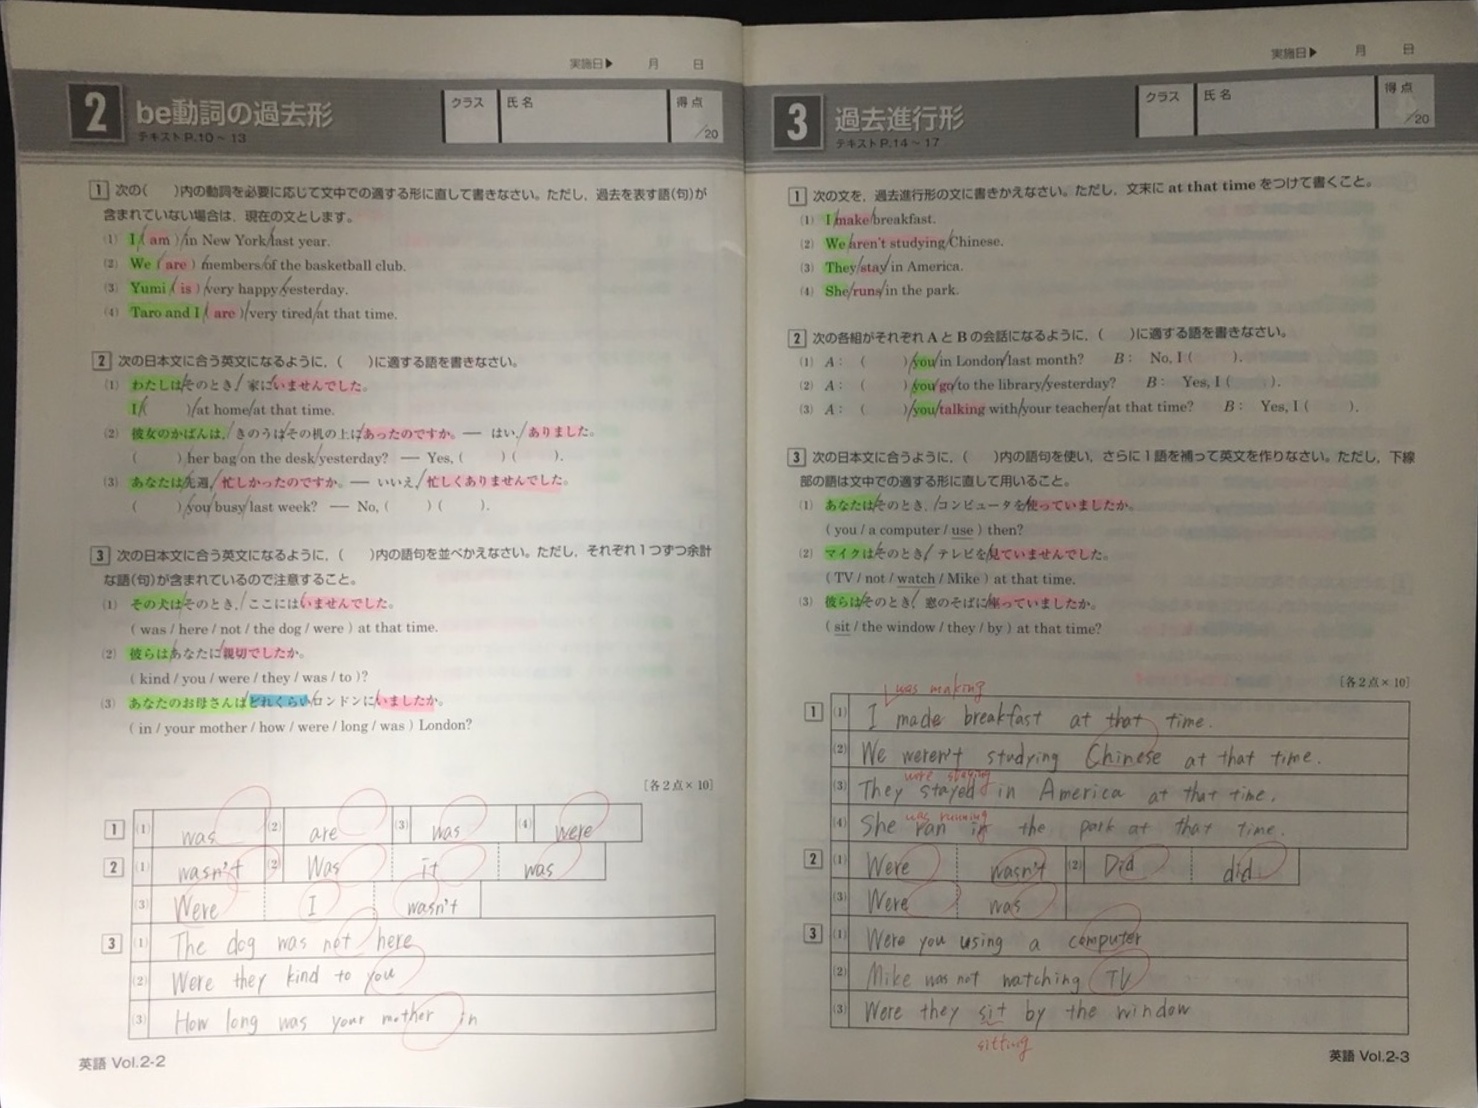 実施日▶ 月 日
2 be動詞の過去形
テキストP.10~13
クラス 氏名 得点 /20
1 次の( )内の動詞を必要に応じて文中での適する形に直して書きなさい。ただし，過去を表す語(句)が
含まれていない場合は，現在の文とします。
(1) I ( am ) in New York last year.
(2) We ( are ) members of the basketball club.
(3) Yumi ( is ) very happy yesterday.
(4) Taro and I ( are ) very tired at that time.
2 次の日本文に合う英文になるように，( )に適する語を書きなさい。
(1) わたしはそのとき，家にいませんでした。
I ( ) at home at that time.
(2) 彼女のかばんは，きのうはその机の上にあったのですか。― はい，ありました。
( ) her bag on the desk yesterday? ― Yes, ( ) ( ).
(3) あなたは先週，忙しかったのですか。― いいえ，忙しくありませんでした。
( ) you busy last week? ― No, ( ) ( ).
3 次の日本文に合う英文になるように，( )内の語句を並べかえなさい。ただし，それぞれ1つずつ余計
な語(句)が含まれているので注意すること。
(1) その犬はそのとき，ここにはいませんでした。
( was / here / not / the dog / were ) at that time.
(2) 彼らはあなたに親切でしたか。
( kind / you / were / they / was / to )?
(3) あなたのお母さんはどれくらいロンドンにいましたか。
( in / your mother / how / were / long / was ) London?
[各2点×10]
1 (1) was (2) are (3) was (4) were
2 (1) wasn't (2) Was it was
(3) Were I wasn't
3 (1) The dog was not here
(2) Were they kind to you
(3) How long was your mother in
英語 Vol.2-2
実施日▶ 月 日
3 過去進行形
テキストP.14~17
クラス 氏名 得点 /20
1 次の文を，過去進行形の文に書きかえなさい。ただし，文末に at that time をつけて書くこと。
(1) I make breakfast.
(2) We aren't studying Chinese.
(3) They stay in America.
(4) She runs in the park.
2 次の各組がそれぞれAとBの会話になるように，( )に適する語を書きなさい。
(1) A: ( ) you in London last month? B: No, I ( ).
(2) A: ( ) you go to the library yesterday? B: Yes, I ( ).
(3) A: ( ) you talking with your teacher at that time? B: Yes, I ( ).
3 次の日本文に合うように，( )内の語句を使い，さらに1語を補って英文を作りなさい。ただし，下線
部の語は文中での適する形に直して用いること。
(1) あなたはそのとき，コンピュータを使っていましたか。
( you / a computer / use ) then?
(2) マイクはそのとき，テレビを見ていませんでした。
( TV / not / watch / Mike ) at that time.
(3) 彼らはそのとき，窓のそばに座っていましたか。
( sit / the window / they / by ) at that time?
[各2点×10]
was making
1 (1) I made breakfast at that time.
(2) We weren't studying Chinese at that time.
were staying
(3) They stayed in America at that time.
was running
(4) She ran in the park at that time.
2 (1) Were wasn't (2) Did did
(3) Were was
3 (1) Were you using a computer
(2) Mike was not watching TV
(3) Were they sit by the window
sitting
英語 Vol.2-3